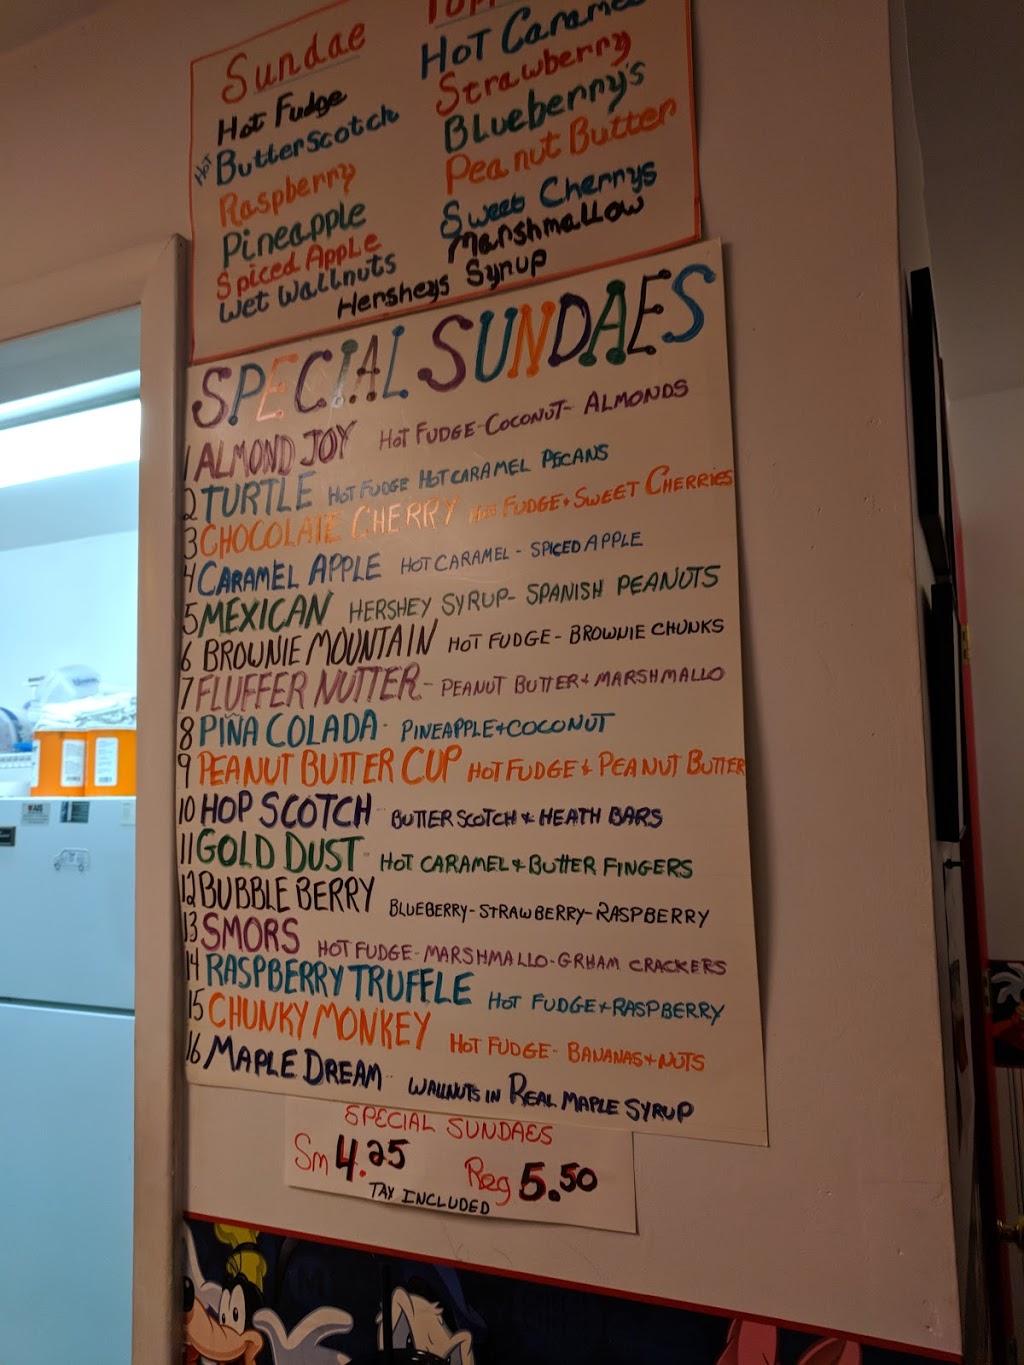 Sundae
Hot Fudge
Hot Butterscotch
Raspberry
Pineapple
Spiced Apple
Wet Wallnuts
Hot Caramel
Strawberry
Blueberry's
Peanut Butter
Sweet Cherrys
Marshmallow
Hersheys Syrup
SPECIAL SUNDAES
1 ALMOND JOY HOT FUDGE-COCONUT-ALMONDS
2 TURTLE HOT FUDGE HOT CARAMEL PECANS
3 CHOCOLATE CHERRY HOT FUDGE & SWEET CHERRIES
4 CARAMEL APPLE HOT CARAMEL - SPICED APPLE
5 MEXICAN HERSHEY SYRUP- SPANISH PEANUTS
6 BROWNIE MOUNTAIN HOT FUDGE - BROWNIE CHUNKS
7 FLUFFER NUTTER - PEANUT BUTTER & MARSHMALLO
8 PIÑA COLADA - PINEAPPLE & COCONUT
9 PEANUT BUTTER CUP HOT FUDGE & PEANUT BUTTER
10 HOP SCOTCH BUTTER SCOTCH & HEATH BARS
11 GOLD DUST - HOT CARAMEL & BUTTER FINGERS
12 BUBBLE BERRY BLUEBERRY-STRAWBERRY-RASPBERRY
13 SMORS HOT FUDGE-MARSHMALLO-GRHAM CRACKERS
14 RASPBERRY TRUFFLE HOT FUDGE & RASPBERRY
15 CHUNKY MONKEY HOT FUDGE - BANANAS & NUTS
16 MAPLE DREAM - WALLNUTS IN REAL MAPLE SYRUP
SPECIAL SUNDAES
Sm 4.25 Reg 5.50
TAX INCLUDED